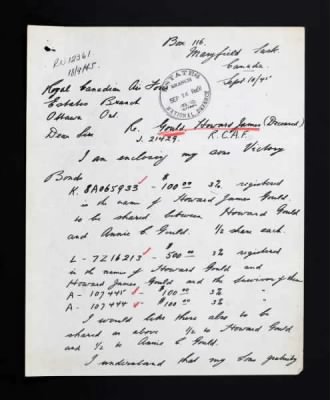 Box 116.
Maryfield Sask.
Canada.
Sept 10/45
RN 12361
18/9/45.
Royal Canadian Air Force
Estates Branch
Ottawa Ont.
ESTATES
BRANCH
SEP 14
NATIONAL DEFENCE
Dear Sir
Re. Gould, Howard James (Deceased)
J. 21429. R.C.A.F.
I am enclosing my sons Victory
Bonds
K. 8A065933 - $100.00 3% registered
in the name of Howard James Gould.
to be shared between Howard Gould
and Annie E. Gould. 1/2 share each.
L - 7Z16213 - $500.00 3% registered
in the name of Howard Gould and
Howard James, Gould and the survivor of them
A - 107445 - $100.00 3% "
A - 107444 - $100.00 3% "
I would like these also to be
shared as above 1/2 to Howard Gould
and 1/2 to Annie E. Gould.
I understand that my Sons gratuity